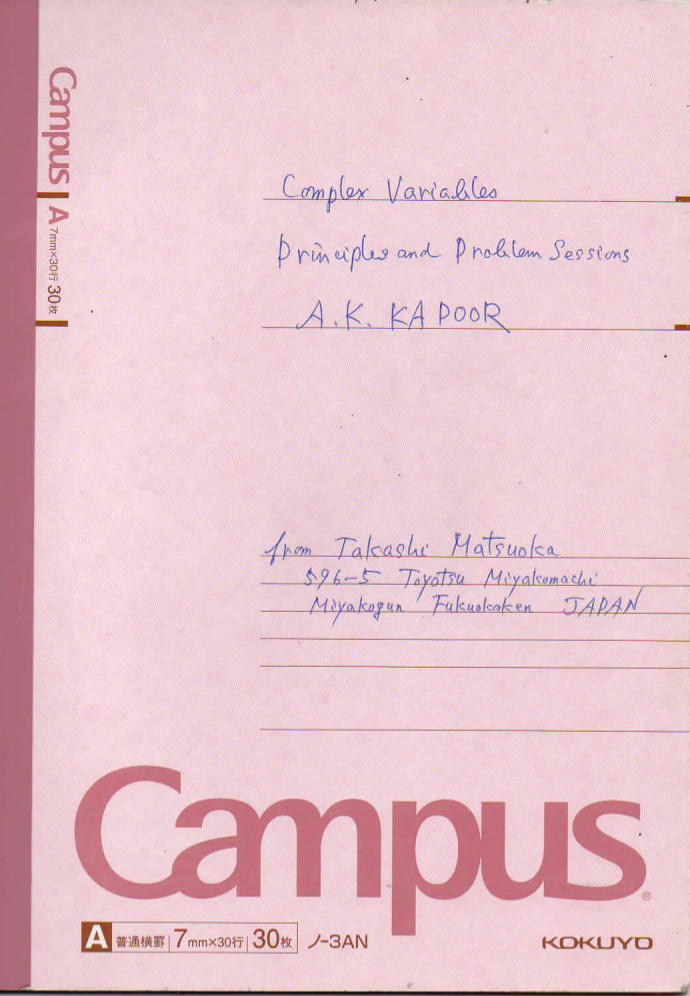 Campus
A 7mm×30行 30枚
Complex Variables
Principles and Problem Sessions
A.K. KAPOOR
from Takashi Matsuoka
596-5 Toyotsu Miyakomachi
Miyakogun Fukuokaken JAPAN
Campus®
A 普通横罫 7mm×30行 30枚 ノ-3AN
KOKUYO